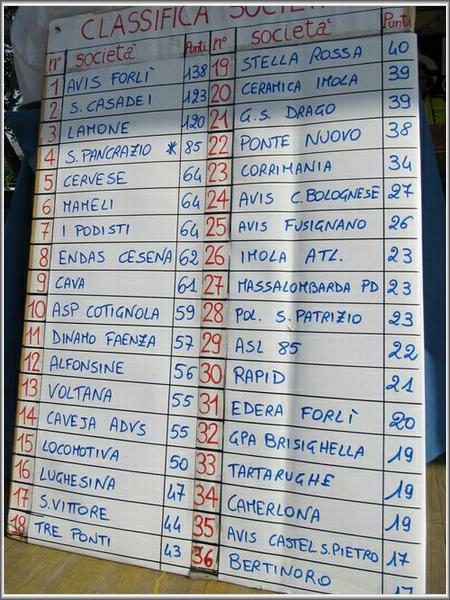 CLASSIFICA SOCIETA'
n° società Punti
1 AVIS FORLÌ 138
2 S. CASADEI 123
3 LAMONE 120
4 S. PANCRAZIO * 85
5 CERVESE 64
6 MAMELI 64
7 I PODISTI 64
8 ENDAS CESENA 62
9 CAVA 61
10 ASP COTIGNOLA 59
11 DINAMO FAENZA 57
12 ALFONSINE 56
13 VOLTANA 55
14 CAVEJA ADVS 55
15 LOCOMOTIVA 50
16 LUGHESINA 47
17 S. VITTORE 44
18 TRE PONTI 43
n° società Punti
19 STELLA ROSSA 40
20 CERAMICA IMOLA 39
21 G.S. DRAGO 39
22 PONTE NUOVO 38
23 CORRIMANIA 34
24 AVIS C. BOLOGNESE 27
25 AVIS FUSIGNANO 26
26 IMOLA ATL. 23
27 MASSALOMBARDA PD 23
28 POL. S. PATRIZIO 23
29 ASL 85 22
30 RAPID 21
31 EDERA FORLÌ 20
32 GPA BRISIGHELLA 19
33 TARTARUGHE 19
34 CAMERLONA 19
35 AVIS CASTEL S. PIETRO 17
36 BERTINORO 17